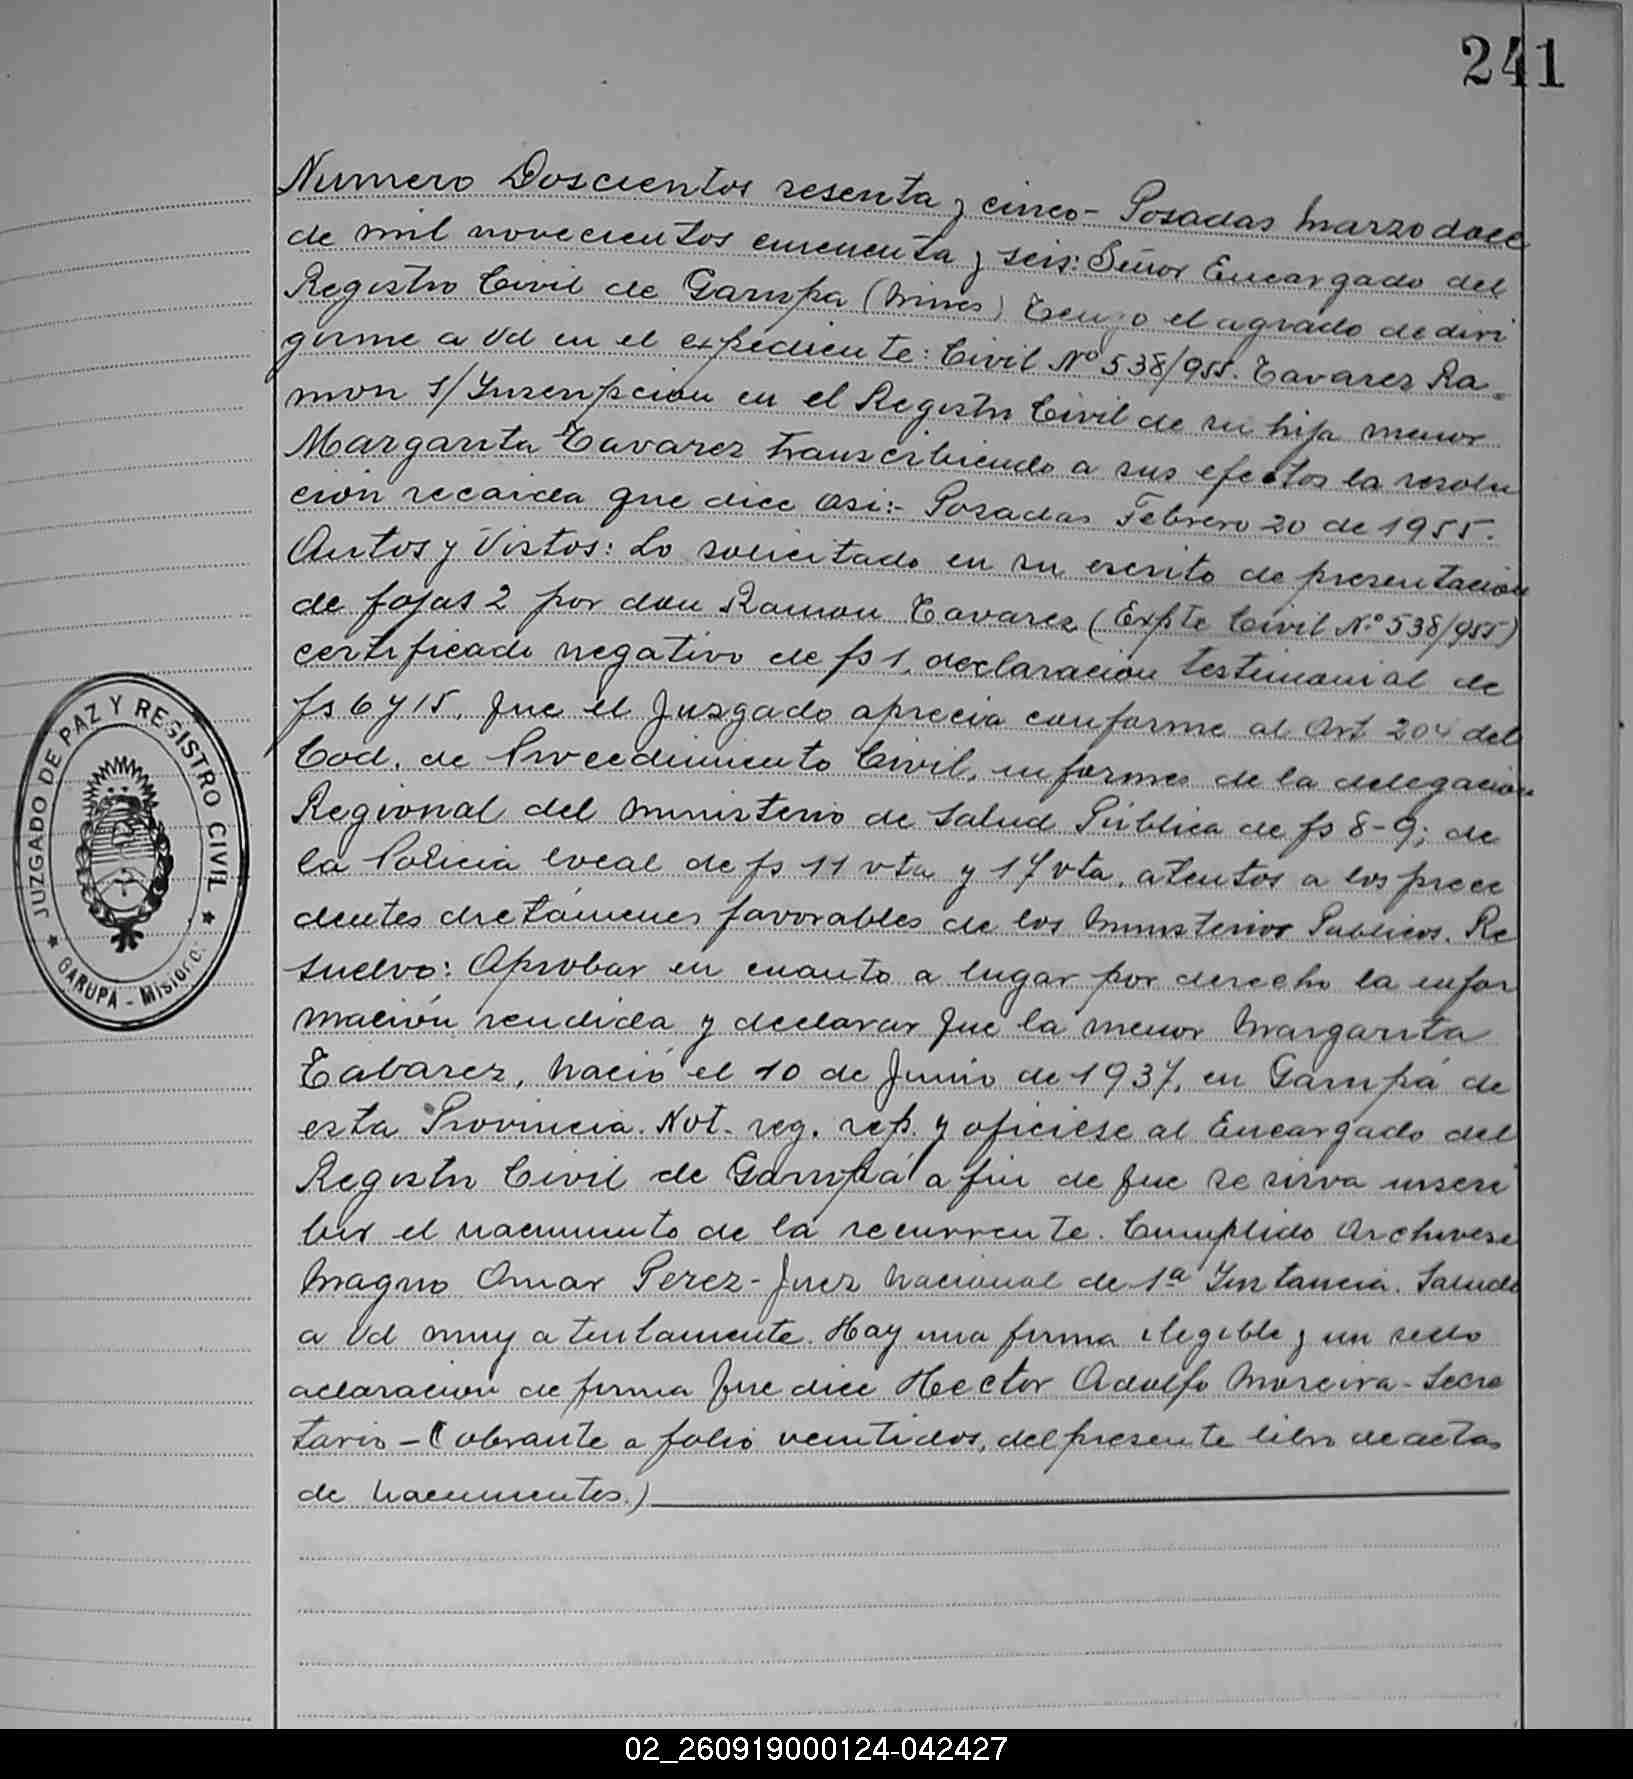 241
Numero Doscientos sesenta y cinco - Posadas Marzo doce
de mil novecientos cincuenta y seis: Señor Encargado del
Registro Civil de Garupa (Mnes) Tengo el agrado de diri
girme a Vd en el expediente: Civil Nº 538/955. Tavarez Ra-
mon s/ Inscripcion en el Registro Civil de su hija menor
Margarita Tavarez transcribiendo a sus efectos la resolu
cion recaida que dice asi:- Posadas Febrero 20 de 1955.
Autos y Vistos: Lo solicitado en su escrito de presentacion
de fojas 2 por don Ramon Tavarez (Expte Civil Nº 538/955)
certificado negativo de fs 1, declaracion testimonial de
fs 6 y 15, que el Juzgado aprecia conforme al Art 204 del
Cod. de Procedimiento Civil, informes de la delegacion
Regional del Ministerio de Salud Pública de fs 8-9; de
la Policia local de fs 11 vta y 17 vta, atentos a los prece
dentes dictámenes favorables de los Ministerios Publicos. Re
suelvo: Aprobar en cuanto a lugar por derecho la infor
mación rendida y declarar que la menor Margarita
Tabarez, Nació el 10 de Junio de 1937, en Garupá de
esta Provincia. Not. reg. rep. y oficiese al Encargado del
Registro Civil de Garupá a fin de que se sirva inscri
bir el nacimiento de la recurrente. Cumplido Archivese
Magno Omar Perez - Juez Nacional de 1ª Instancia. Saludo
a Vd muy atentamente. Hay una firma ilegible y un sello
aclaracion de firma que dice Hector Adolfo Moreira - Secre
tario - (obrante a folio veintidos, del presente libro de actas
de Nacimientos.)
JUZGADO DE PAZ Y REGISTRO CIVIL
GARUPA - Misiones
02_260919000124-042427